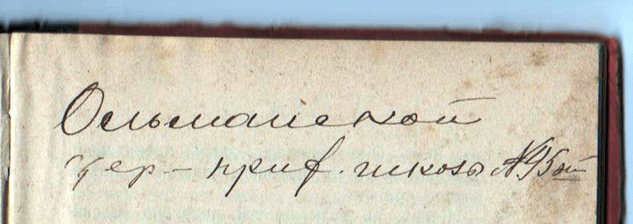 Ольманской
цер-приф. школы №95ой